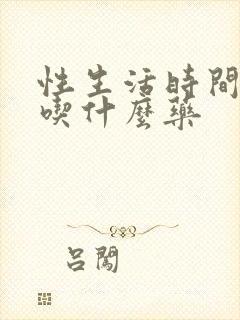 性生活時間
喫什麼藥
呂闖